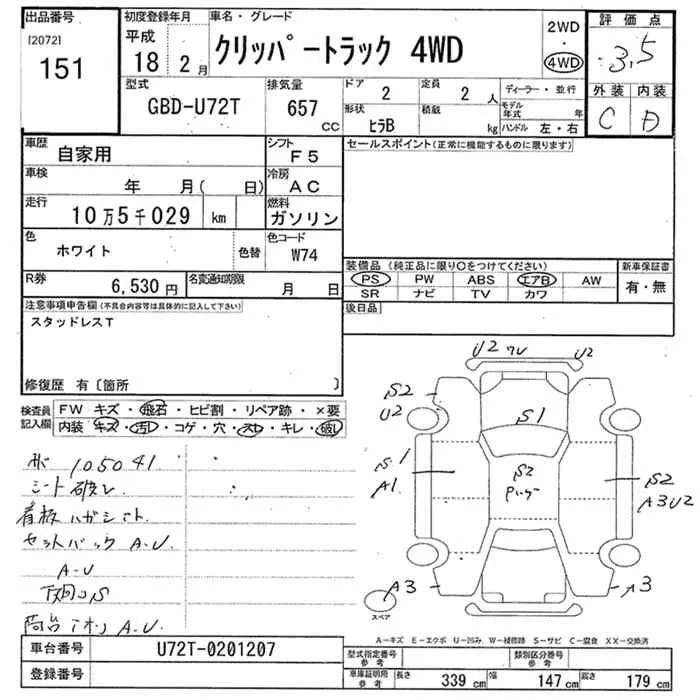 出品番号
[2072]
151
初度登録年月
平成 18 2月
車名・グレード
クリッパートラック 4WD
2WD
・
4WD
評価点
3.5
外装 内装
C D
型式
GBD-U72T
排気量
657 CC
ドア
2
定員
2 人
形状
ヒラB
積載
kg
ディーラー・並行
モデル年式 年
ハンドル 左・右
車歴
自家用
シフト
F5
車検
年 月( 日)
冷房
AC
走行
10万5千029 km
燃料
ガソリン
色
ホワイト
色替
色コード
W74
R券
6,530円
名変通知期限
月 日
セールスポイント(正常に機能するものに限ります)
装備品 (純正品に限り○をつけてください)
PS PW ABS エアB AW
SR ナビ TV カワ
新車保証書
有・無
後日品
注意事項申告欄(不具合内容等は具体的に記入して下さい)
スタッドレスT
修復歴 有〔箇所 〕
検査員記入欄
FW キズ・飛石・ヒビ割・リペア跡・×要
内装・キズ・汚れ・コゲ・穴・スレ・キレ・破れ
105041
シート破レ
看板ハガシ
セットバック A・U
A・U
下回りS
荷台 A・U
U2 ワレ U2
S2
U2
S1
S1
A1
S2
S2
A3U2
A3
3
スペア
A-キズ E-エクボ U-凹み W-補修跡 S-サビ C-腐食 XX-交換済
車台番号
U72T-0201207
登録番号
型式指定番号
参考
類別区分番号
参考
車庫証明用
参考
長さ 339 cm 幅 147 cm 高さ 179 cm